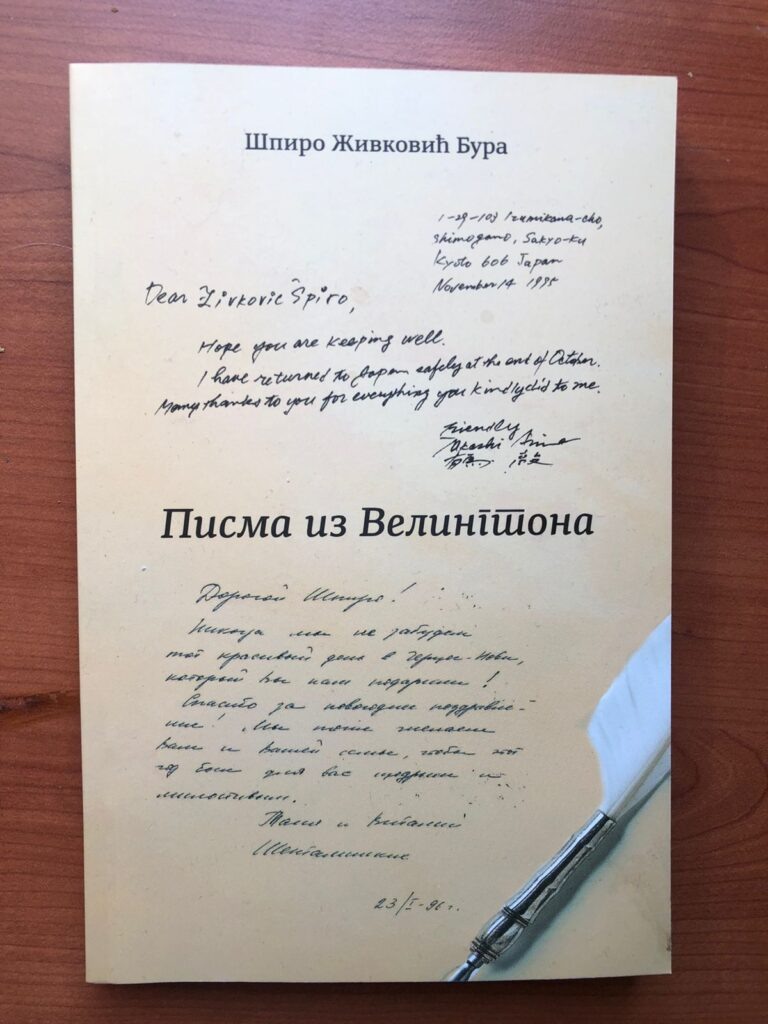 Шпиро Живковић Бура
1-29-103 Izumikawa-cho,
Shimogamo, Sakyo-ku
Kyoto 606 Japan
November 14 1995
Dear Živković Špiro,
Hope you are keeping well.
I have returned to Japan safely at the end of October.
Many thanks to you for everything you kindly did to me.
Friendly
Писма из Велингтона
Дорогой Шпиро!
Никогда мы не забудем
тот красивый день в Герцег-Нови,
который Вы нам подарили!
Спасибо за новогодние поздравле-
ние! Мы тоже желаем
Вам и Вашей семье, чтобы этот
год был для вас щедрым и
милостивым.
Таня и Виталий
Шенталинские
23/I-96 г.